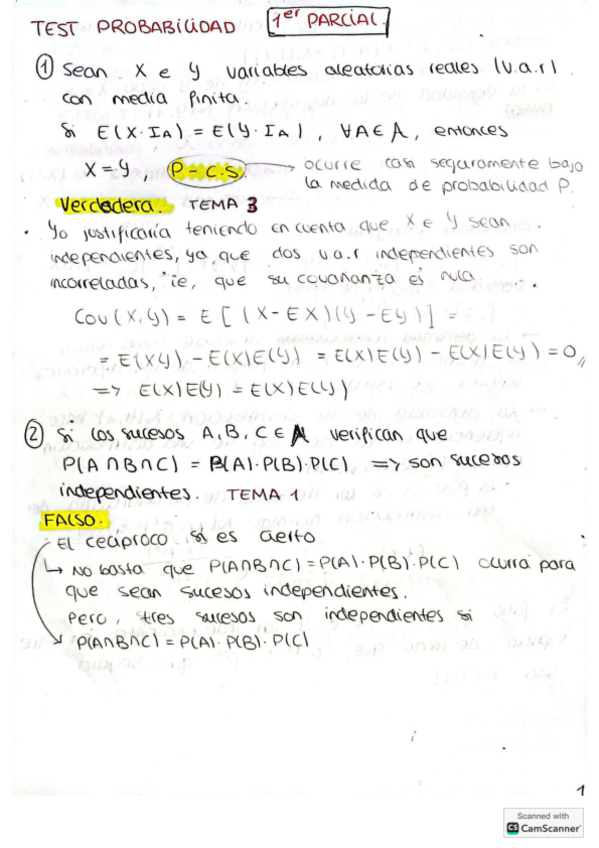 TEST PROBABILIDAD 1er PARCIAL.
① Sean X e Y variables aleatorias reales (v.a.r)
con media finita.
Si E(X·I_A) = E(Y·I_A), ∀A∈A, entonces
X = Y, P-c.s. → ocurre casi seguramente bajo
la medida de probabilidad P.
Verdadera. TEMA 3
· Yo justificaría teniendo en cuenta que X e Y sean
independientes, ya que dos v.a.r independientes son
incorreladas, ie, que su covarianza es nula.
Cov(X,Y) = E[(X-EX)(Y-EY)] =
= E(XY) - E(X)E(Y) = E(X)E(Y) - E(X)E(Y) = 0,,
=> E(X)E(Y) = E(X)E(Y)
② Si los sucesos A, B, C ∈ A verifican que
P(A∩B∩C) = P(A)·P(B)·P(C) => son sucesos
independientes. TEMA 1
FALSO.
El recíproco si es cierto
↳ No basta que P(A∩B∩C) = P(A)·P(B)·P(C) ocurra para
que sean sucesos independientes.
Pero, tres sucesos son independientes si
P(A∩B∩C) = P(A)·P(B)·P(C)
1
Scanned with
CS CamScanner